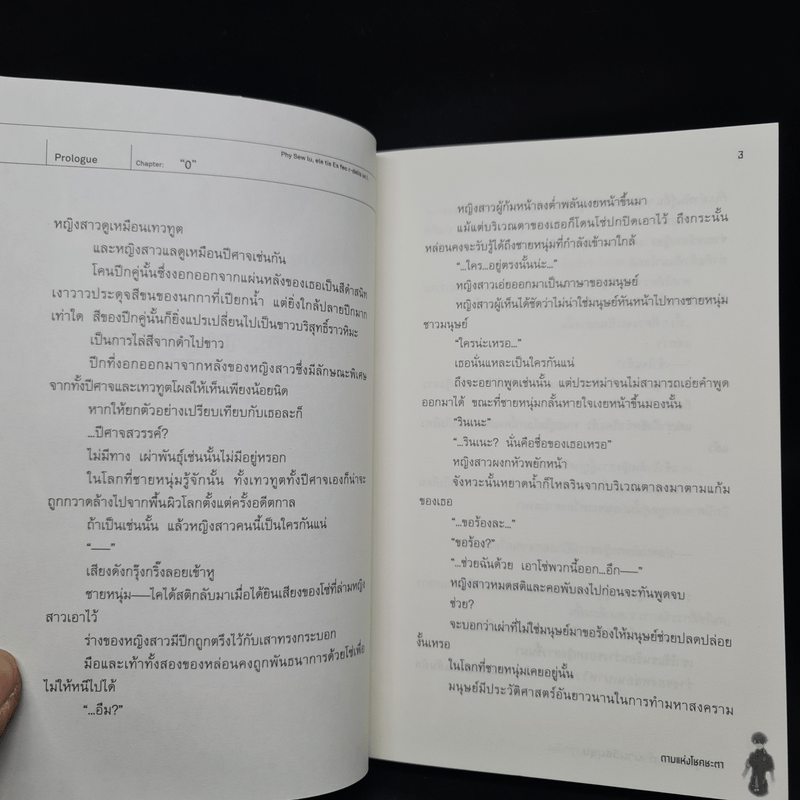 Prologue
Chapter:
"0"
Phy Sew lu, ele tis Es feo r-delis
หญิงสาวดูเหมือนเทวทูต
และหญิงสาวแลดูเหมือนปีศาจเช่นกัน
โคนปีกคู่นั้นซึ่งงอกออกจากแผ่นหลังของเธอเป็นสีดำสนิท
เงาวาวประดุจสีขนของนกกาที่เปียกน้ำ แต่ยิ่งใกล้ปลายปีกมาก
เท่าใด สีของปีกคู่นั้นก็ยิ่งแปรเปลี่ยนไปเป็นขาวบริสุทธิ์ราวหิมะ
เป็นการไล่สีจากดำไปขาว
ปีกที่งอกออกมาจากหลังของหญิงสาวซึ่งมีลักษณะพิเศษ
จากทั้งปีศาจและเทวทูตโผล่ให้เห็นเพียงน้อยนิด
หากให้ยกตัวอย่างเปรียบเทียบกับเธอละก็
...ปีศาจสวรรค์?
ไม่มีทาง เผ่าพันธุ์เช่นนั้นไม่มีอยู่หรอก
ในโลกที่ชายหนุ่มรู้จักนั้น ทั้งเทวทูตทั้งปีศาจเองก็น่าจะ
ถูกกวาดล้างไปจากพื้นผิวโลกตั้งแต่ครั้งอดีตกาล
ถ้าเป็นเช่นนั้น แล้วหญิงสาวคนนี้เป็นใครกันแน่
"——"
เสียงดังกรุ๊งกริ๊งลอยเข้าหู
ชายหนุ่ม——ไคได้สติกลับมาเมื่อได้ยินเสียงของโซ่ที่ล่ามหญิง
สาวเอาไว้
ร่างของหญิงสาวมีปีกถูกตรึงไว้กับเสาทรงกระบอก
มือและเท้าทั้งสองของหล่อนคงถูกพันธนาการด้วยโซ่เพื่อ
ไม่ให้หนีไปได้
"...อืม?"
3
หญิงสาวผู้ก้มหน้าลงต่ำพลันเงยหน้าขึ้นมา
แม้แต่บริเวณตาของเธอก็โดนโซ่ปกปิดเอาไว้ ถึงกระนั้น
หล่อนคงจะรับรู้ได้ถึงชายหนุ่มที่กำลังเข้ามาใกล้
"...ใคร...อยู่ตรงนั้นน่ะ..."
หญิงสาวเอ่ยออกมาเป็นภาษาของมนุษย์
หญิงสาวผู้เห็นได้ชัดว่าไม่น่าใช่มนุษย์หันหน้าไปทางชายหนุ่ม
ชาวมนุษย์
"ใครน่ะเหรอ..."
เธอนั่นแหละเป็นใครกันแน่
ถึงจะอยากพูดเช่นนั้น แต่ประหม่าจนไม่สามารถเอ่ยคำพูด
ออกมาได้ ขณะที่ชายหนุ่มกลั้นหายใจเงยหน้าขึ้นมองนั้น
"รินเนะ"
"...รินเนะ? นั่นคือชื่อของเธอเหรอ"
หญิงสาวผงกหัวพยักหน้า
จังหวะนั้นหยาดน้ำก็ไหลรินจากบริเวณตาลงมาตามแก้ม
ของเธอ
"...ขอร้องละ..."
"ขอร้อง?"
"...ช่วยฉันด้วย เอาโซ่พวกนี้ออก...อึก——"
หญิงสาวหมดสติและคอพับลงไปก่อนจะทันพูดจบ
ช่วย?
จะบอกว่าเผ่าที่ไม่ใช่มนุษย์มาขอร้องให้มนุษย์ช่วยปลดปล่อย
งั้นเหรอ
ในโลกที่ชายหนุ่มเคยอยู่นั้น
มนุษย์มีประวัติศาสตร์อันยาวนานในการทำมหาสงคราม
ดาบแห่งโชคชะตา